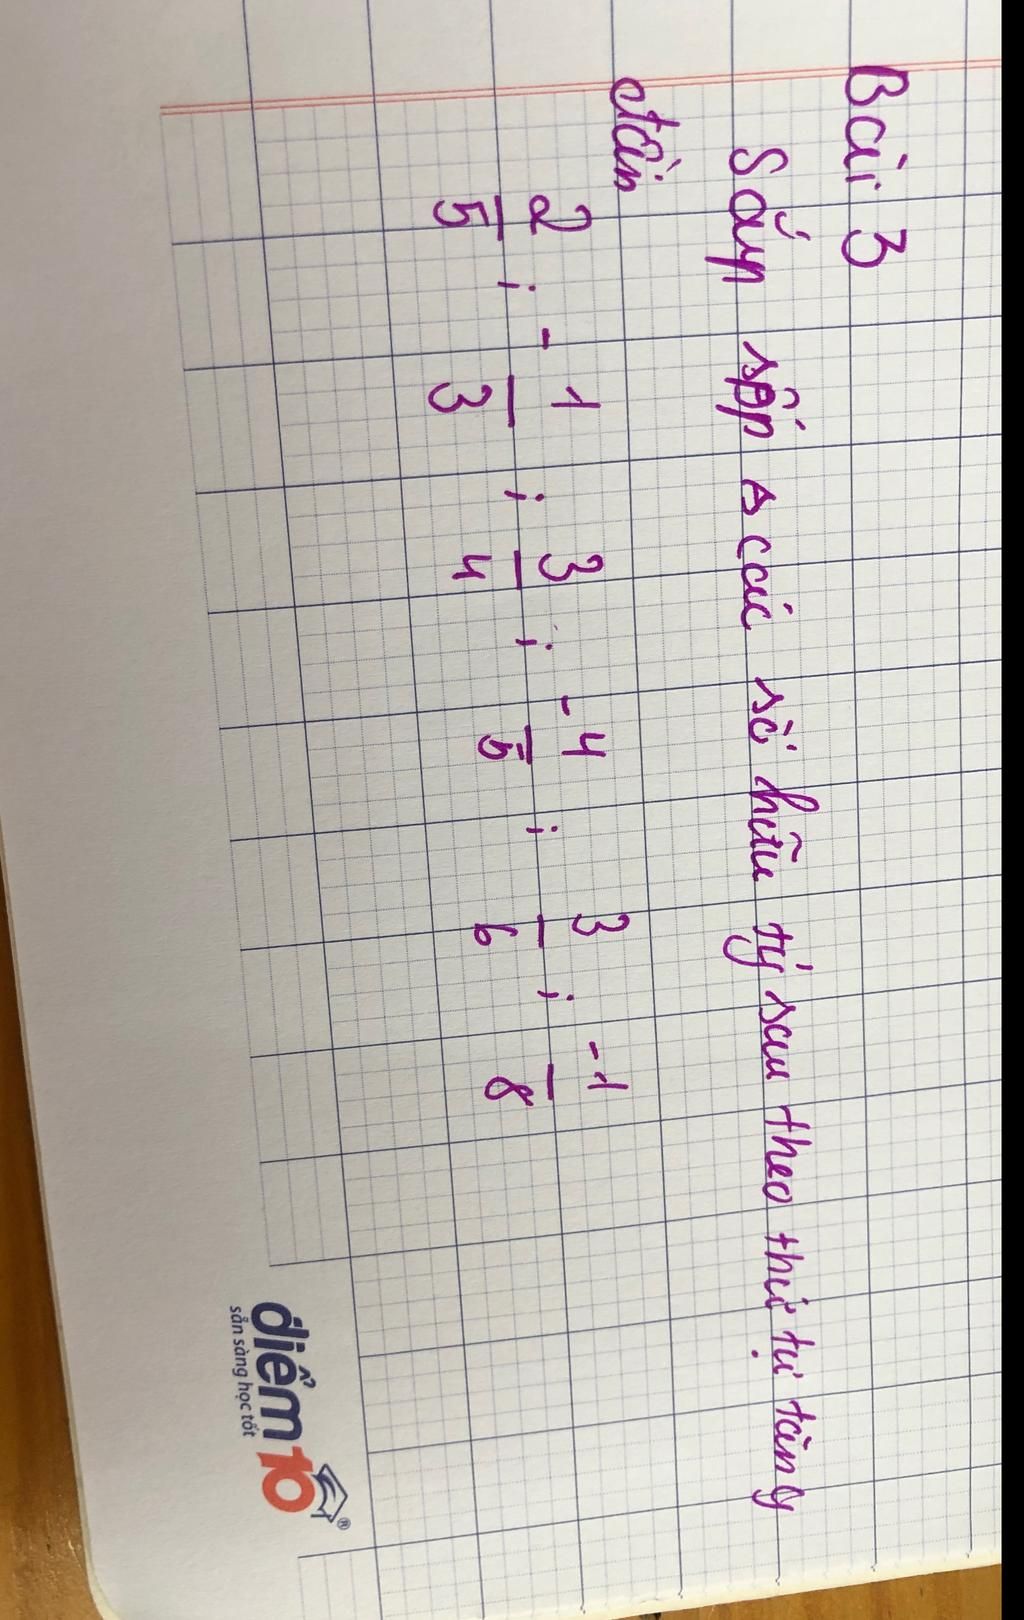 Bài 3
Sắp sếp s các số hữu tỷ sau theo thứ tự tăng
dần
2/5 ; -1/3 ; 3/4 ; -4/5 ; 3/6 ; -1/8
điểm 10 ®
sẵn sàng học tốt